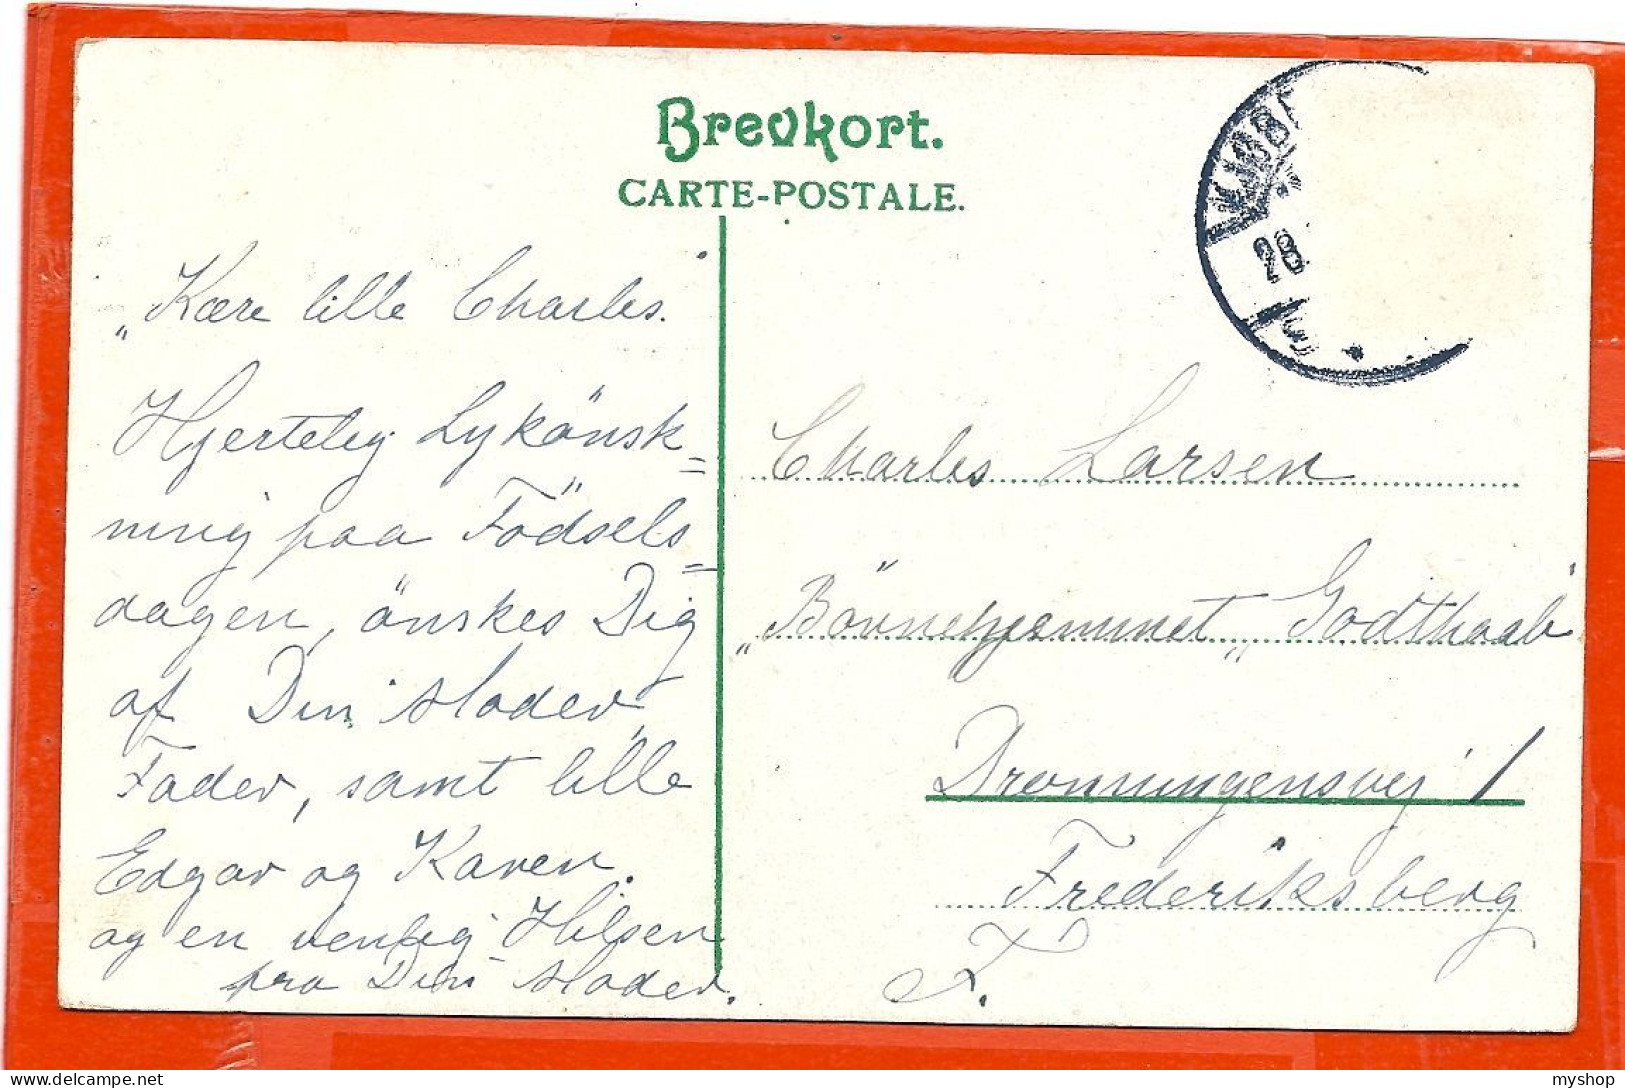 Brevkort.
CARTE-POSTALE.
KJØB
28
"Kære lille Charles.
Hjertelig Lykönsk=
ning paa Födsels=
dagen, önskes Dig
af Din Moder,
Fader, samt lille
Edgar og Karen.
og en venlig Hilsen
fra Din Moder.
Charles Larsen
"Börnehjemmet" Godthaab
Dronningensvej 1
Frederiksberg
F.
delcampe.net
myshop